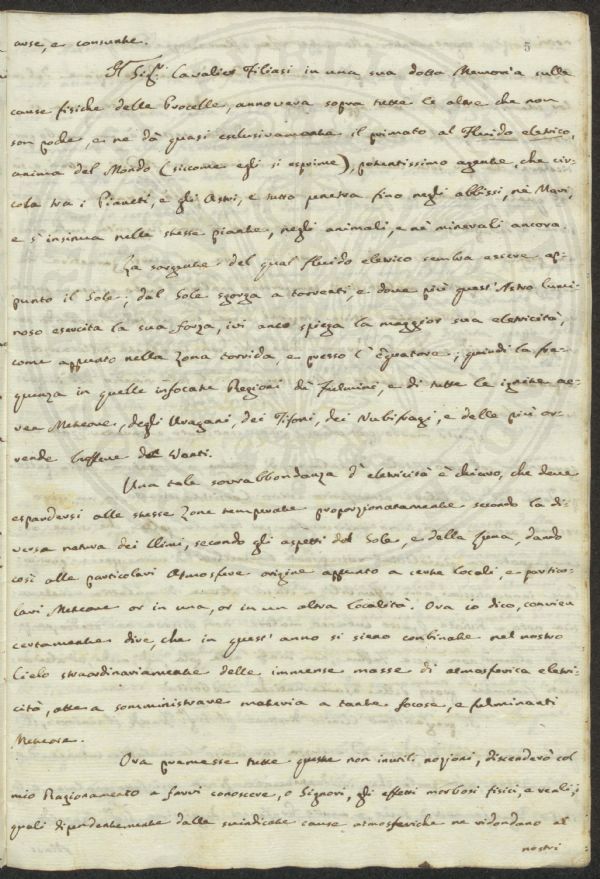 arse, e consunte.
5
Il Sig.r Cavalier Filiasi in una sua dotta Memoria sulle
cause fisiche delle Procelle, annovera sopra tutte le altre che non
son poche, e ne dà quasi esclusivamente il primato al Fluido eletrico,
anima del Mondo (siccome egli si esprime), potentissimo agente, che cir-
cola tra i Pianeti, e gli Astri, e tutto penetra fino negli abbissi, ne' Mari,
e s'insinua nelle stesse piante, negli animali, e ne' minerali ancora.
La sorgente del qual fluido eletrico sembra essere ap-
punto il Sole; dal Sole sgorga a torrenti, e dove più quest'Astro lumi-
noso esercita la sua forza, ivi anco spiega la maggior sua eletricità,
come appunto nella Zona torrida, e presso l'Equatore; quindi la fre-
quenza in quelle infocate Regioni de' Fulmini, e di tutte le ignite ae-
ree Meteore, degli Uragani, dei Tifoni, dei Nubifragi, e delle più or-
rende buffere de' Venti.
Una tale sovrabbondanza d'eletricità è chiaro, che deve
espandersi alle stesse Zone temperate proporzionatamente secondo la di-
versa natura dei Climi, secondo gli aspetti del Sole, e della Luna, dando
così alle particolari Atmosfere origine appunto a certe locali, e partico-
lari Meteore or in una, or in un altra località. Ora io dico, convien
certamente dire, che in quest'anno si sieno combinate nel nostro
Cielo straordinariamente delle immense masse di atmosferica eletri-
cità, atte a somministrare materia a tante focose, e fulminanti
Meteore.
Ora premesse tutte queste non inutili nozioni, discenderò col
mio Ragionamento a farvi conoscere, o Signori, gli effetti morbosi fisici, e reali, i
quali dipendentemente dalle suindicate cause atmosferiche ne ridondano ai
nostri